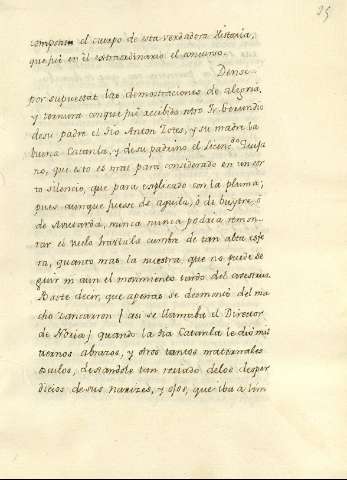 35
compone el cuerpo de esta verdadera Historia,
que fue en él extraordinario el concurso.
Dense
por supuestas las demostraciones de alegria,
y ternura conque fué recibido ntro Fr. Gerundio
desu padre el tio Anton Zotes, y su madre la
buena Catanla, y desu padrino el Licenc.do Quixa
no, que esto es mas para considerado en un cor
to silencio, que para explicado con la pluma;
pues aunque fuese de aguila, ó de buytre, ó
de Avutarda, nunca nunca podria remon-
tar el vuelo hasta la cumbre de tan alta esfe
ra, quanto mas la nuestra, que no puede se
guir ni aun el movimiento tardo del
Baste decir, que apenas se desmontó del ma
cho Zancarron (asi se llamaba el Director
de Noria) quando la tia Catanla le dió mil
tiernos abrazos, y otros tantos maternales
osculos, dexandole tan rociado delos desper
dicios de sus narizes, y ojos, que iba a lim